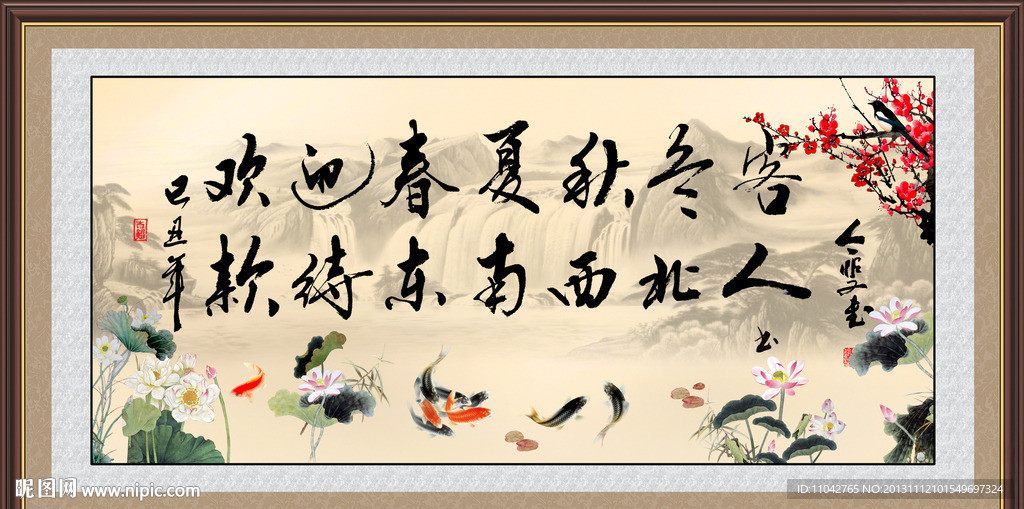 欢迎春夏秋冬客
款待东南西北人
己丑年
书
昵图网 www.nipic.com
ID:11042765 NO:20131112101549697324